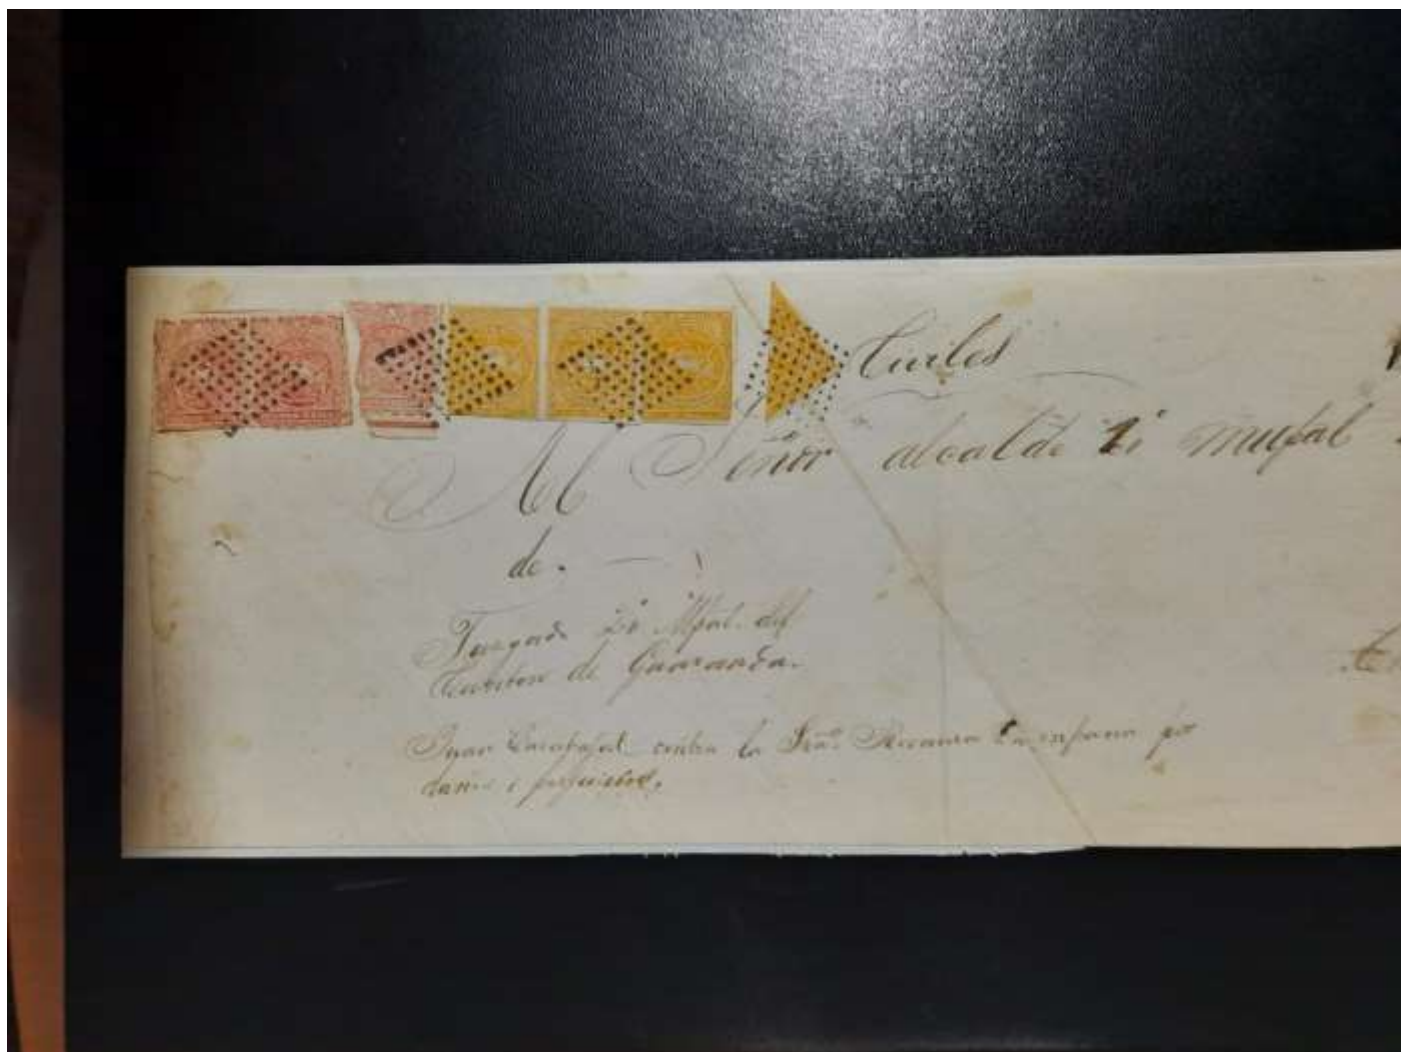 Civiles
Al Señor alcalde 2i
de.
Juzgado 2i Mpal. del
Canton de Guaranda.
Juan Carabajal contra la Sra. por
danos i perjuicios.